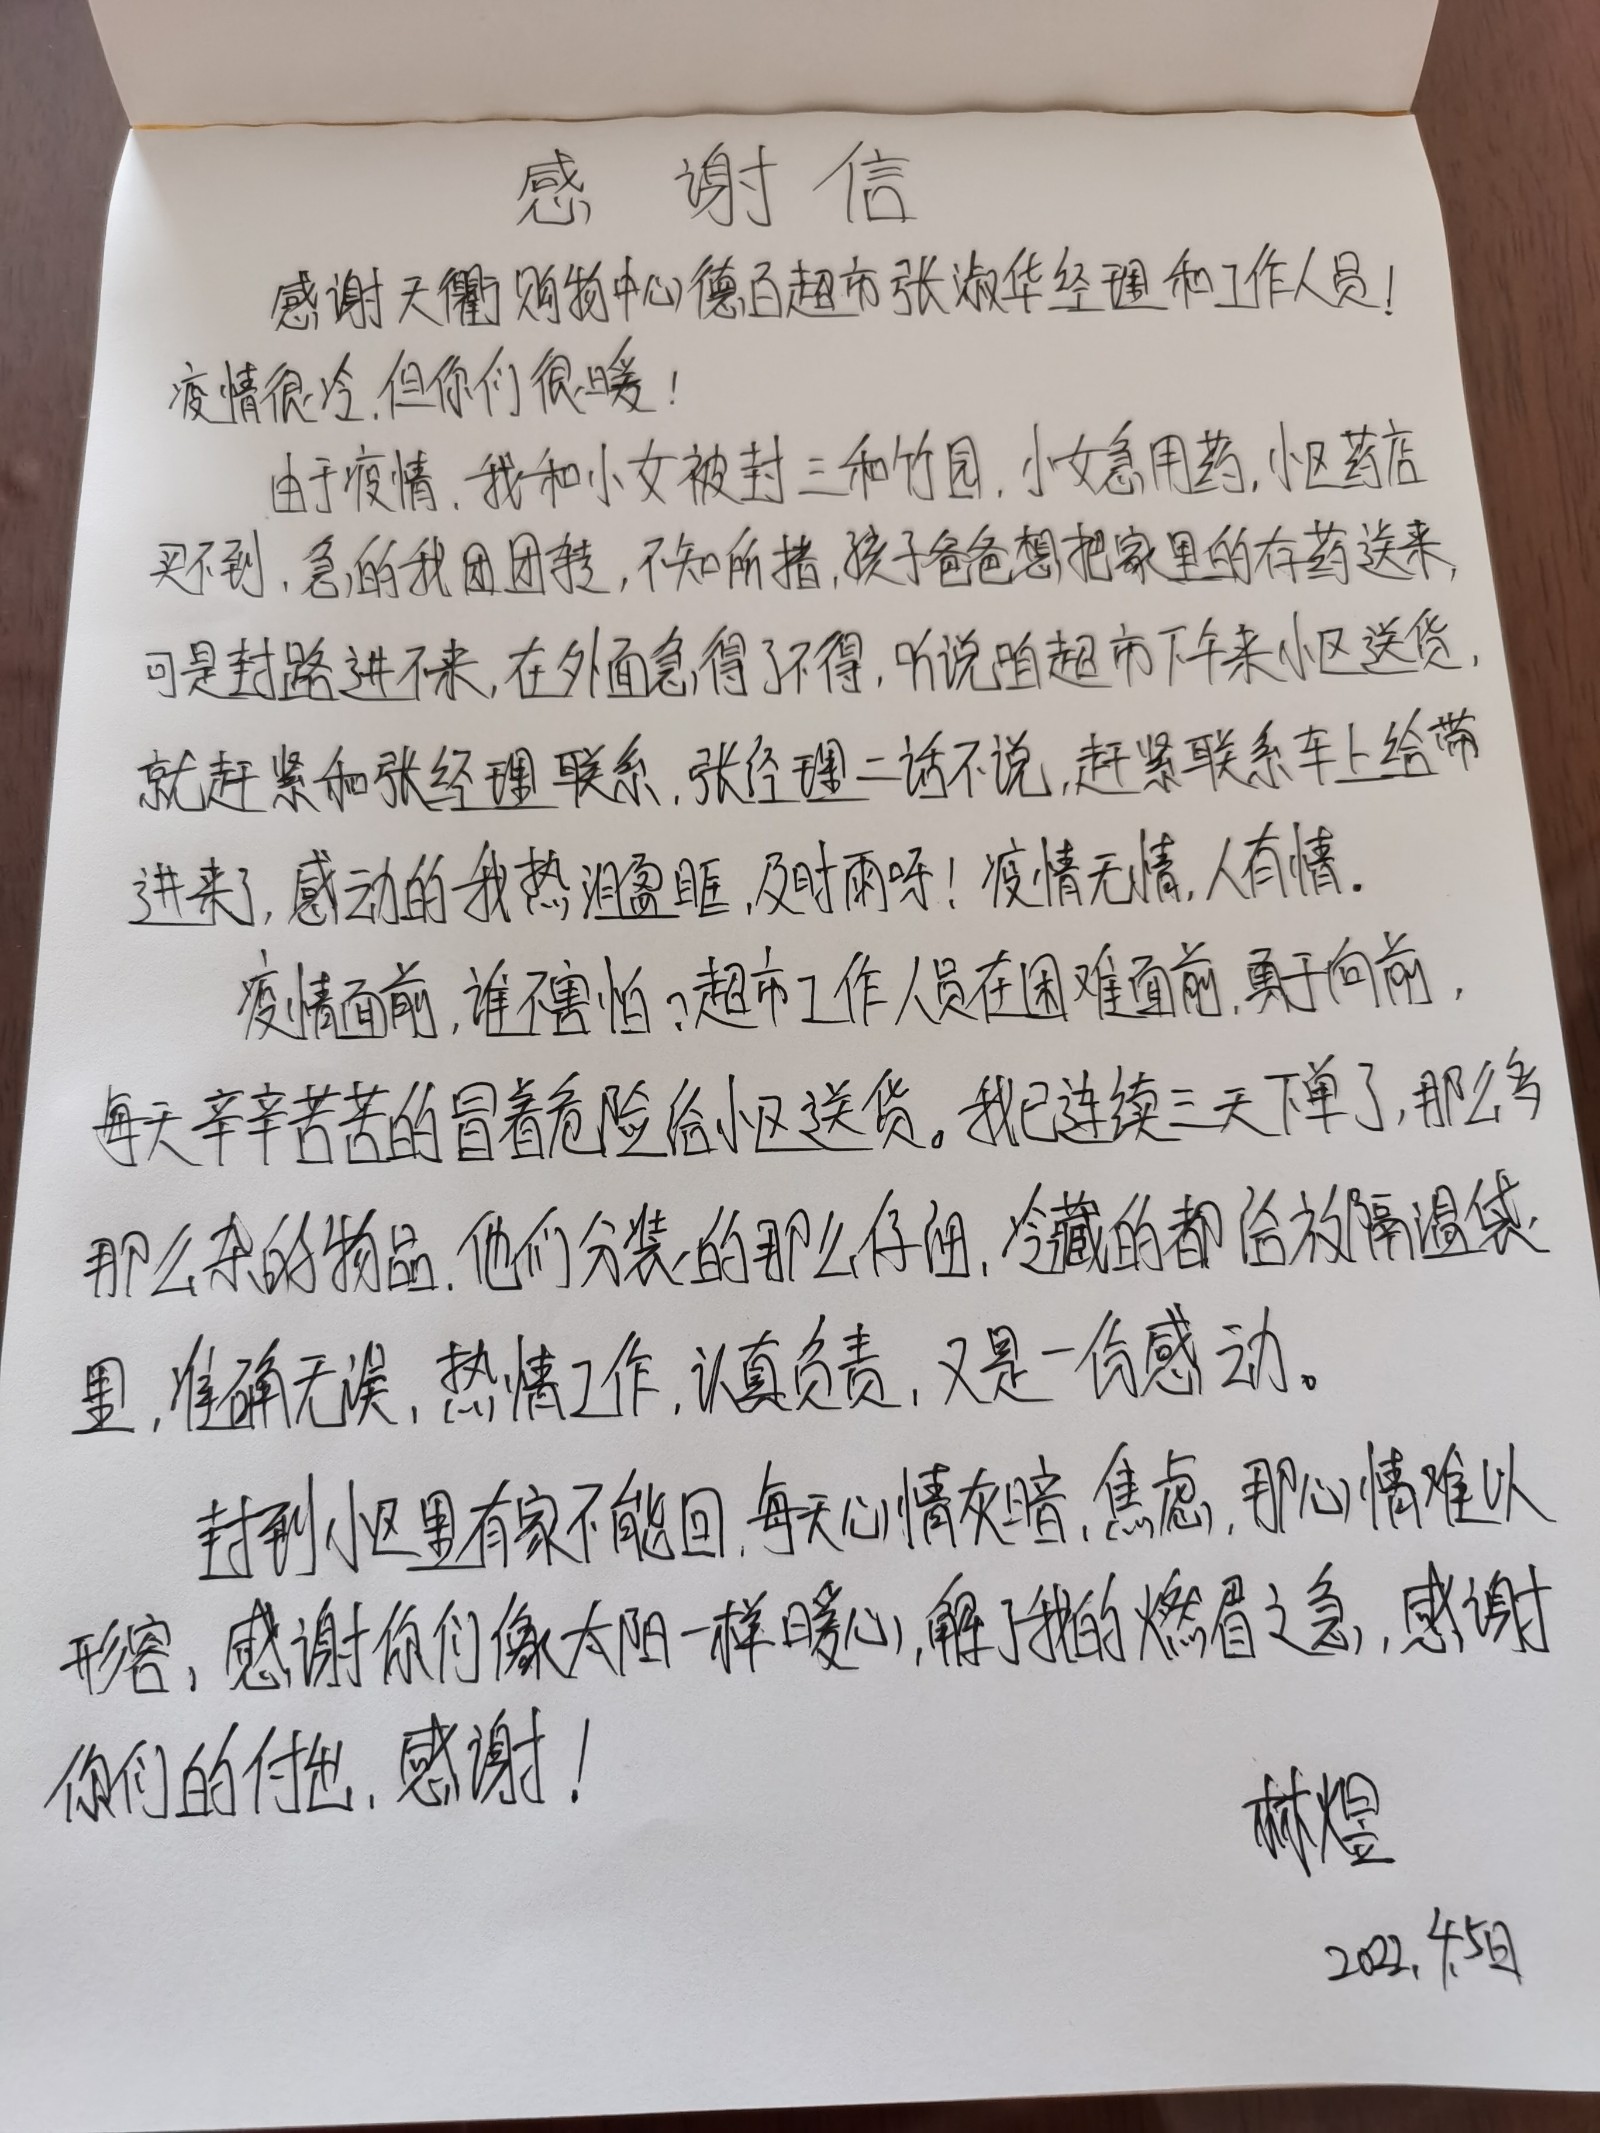 感谢信
感谢天衢购物中心德百超市张淑华经理和工作人员!
疫情很冷,但你们很暖!
由于疫情,我和小女被封三和竹园,小女急用药,小区药店
买不到,急的我团团转,不知所措,孩子爸爸想把家里的存药送来,
可是封路进不来,在外面急得了不得,听说咱超市下午来小区送货,
就赶紧和张经理联系,张经理二话不说,赶紧联系车上给带
进来了,感动的我热泪盈眶,及时雨呀!疫情无情,人有情.
疫情面前,谁不害怕?超市工作人员在困难面前,勇于向前,
每天辛辛苦苦的冒着危险给小区送货。我已连续三天下单了,那么多
那么杂的物品,他们分装的那么仔细,冷藏的都给放隔温袋
里,准确无误,热情工作,认真负责,又是一份感动。
封到小区里有家不能回,每天心情灰暗,焦虑,那心情难以
形容,感谢你们像太阳一样暖心,解了我的燃眉之急,感谢
你们的付出,感谢!
林煜
2022.4.5日